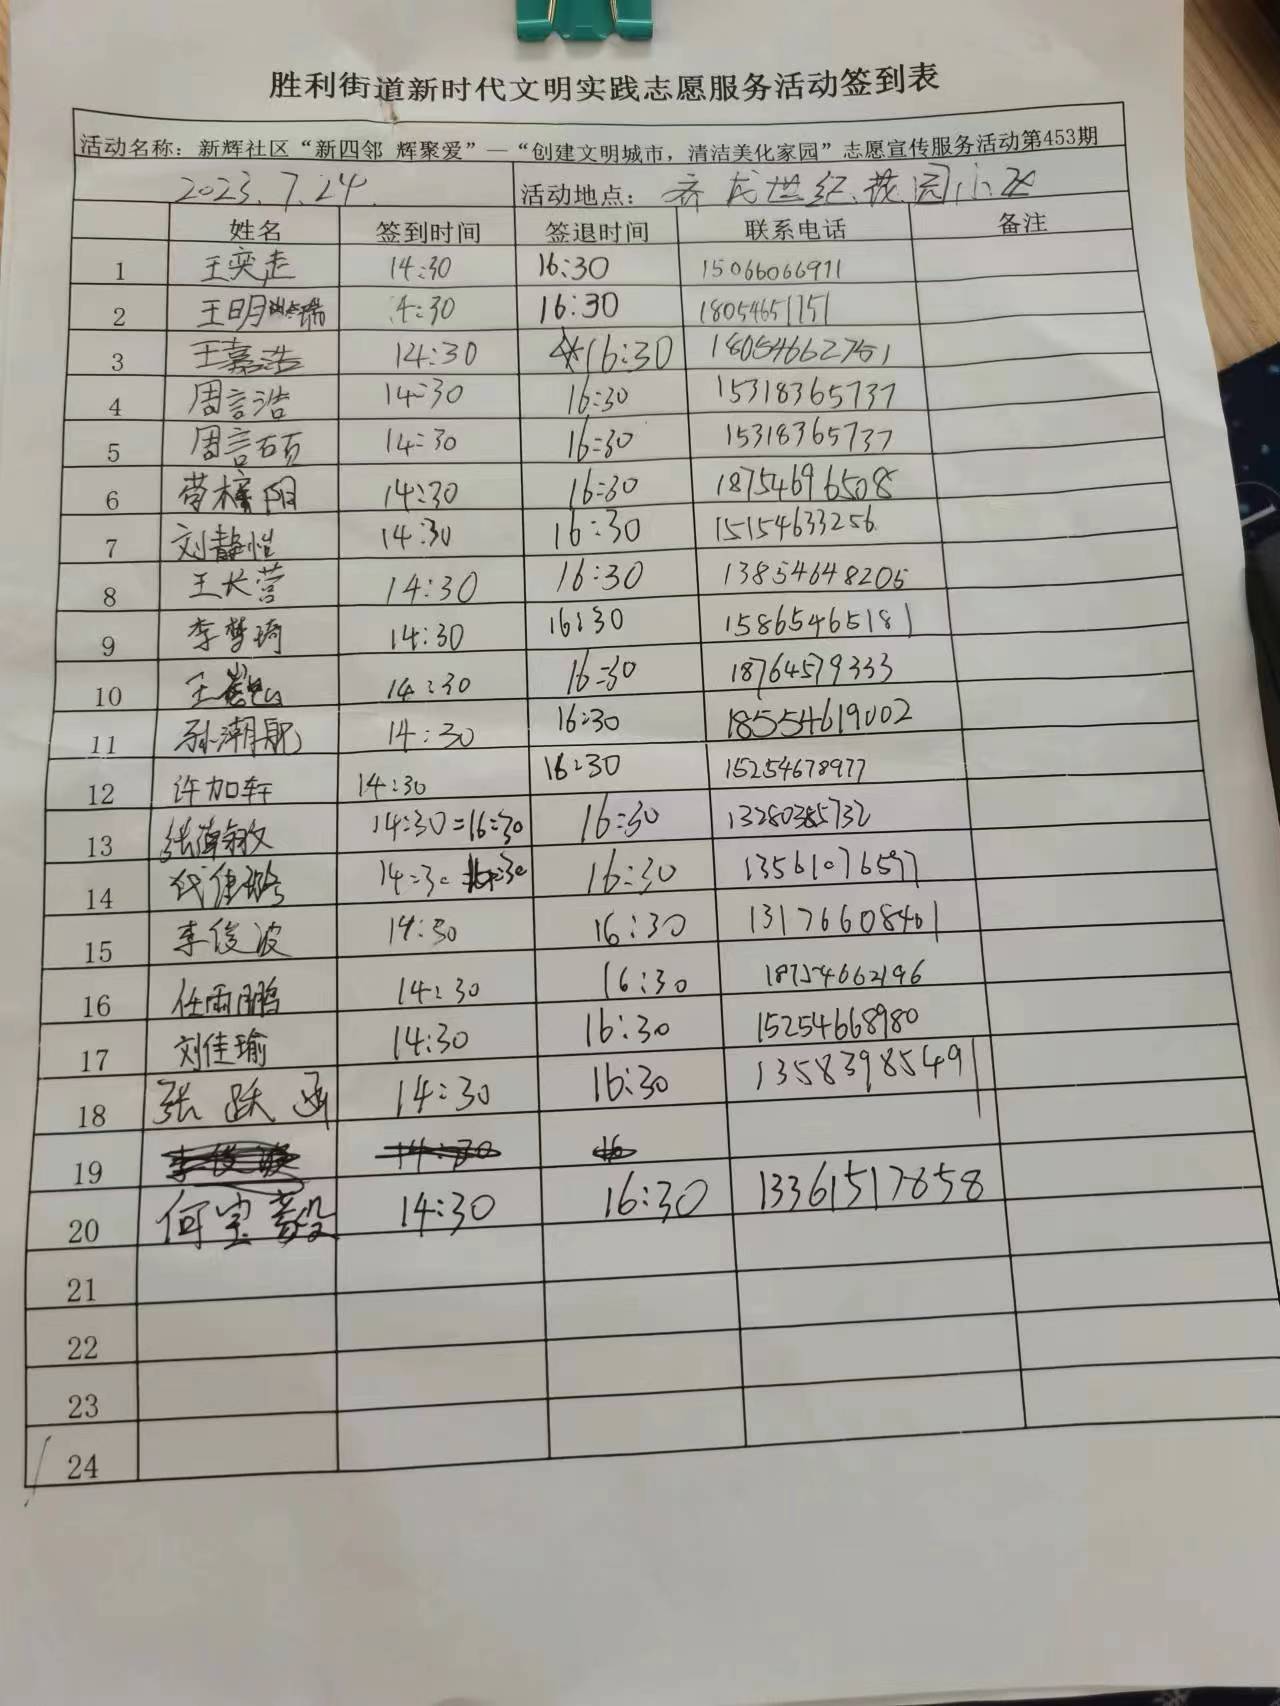 胜利街道新时代文明实践志愿服务活动签到表
活动名称：新辉社区“新四邻 辉聚爱”—“创建文明城市，清洁美化家园”志愿宣传服务活动第453期
2023.7.24. 活动地点：齐成世纪花园小区
姓名 签到时间 签退时间 联系电话 备注
1 王奕走 14:30 16:30 15066066911
2 王明 4:30 16:30 18054651751
3 王嘉浩 14:30 16:30 18054662751
4 周言浩 14:30 16:30 15318365737
5 周言硕 14:30 16:30 15318365737
6 阳 14:30 16:30 18754696508
7 刘静怡 14:30 16:30 15154633256
8 王长营 14:30 16:30 13854648205
9 李梦琦 14:30 16:30 15865465181
10 王 14:30 16:30 18764579333
11 孙潮 14:30 16:30 18554619002
12 许加轩 14:30 16:30 15254678977
13 张瀚文 14:30=16:30 16:30 13280385732
14 14:30 16:30 16:30 13561076597
15 李俊波 14:30 16:30 13176608401
16 任雨鹏 14:30 16:30 18754662196
17 刘佳瑜 14:30 16:30 15254668980
18 张跃函 14:30 16:30 13583985491
19 李俊波 14:30 16
20 何宝毅 14:30 16:30 13361517858
21
22
23
24